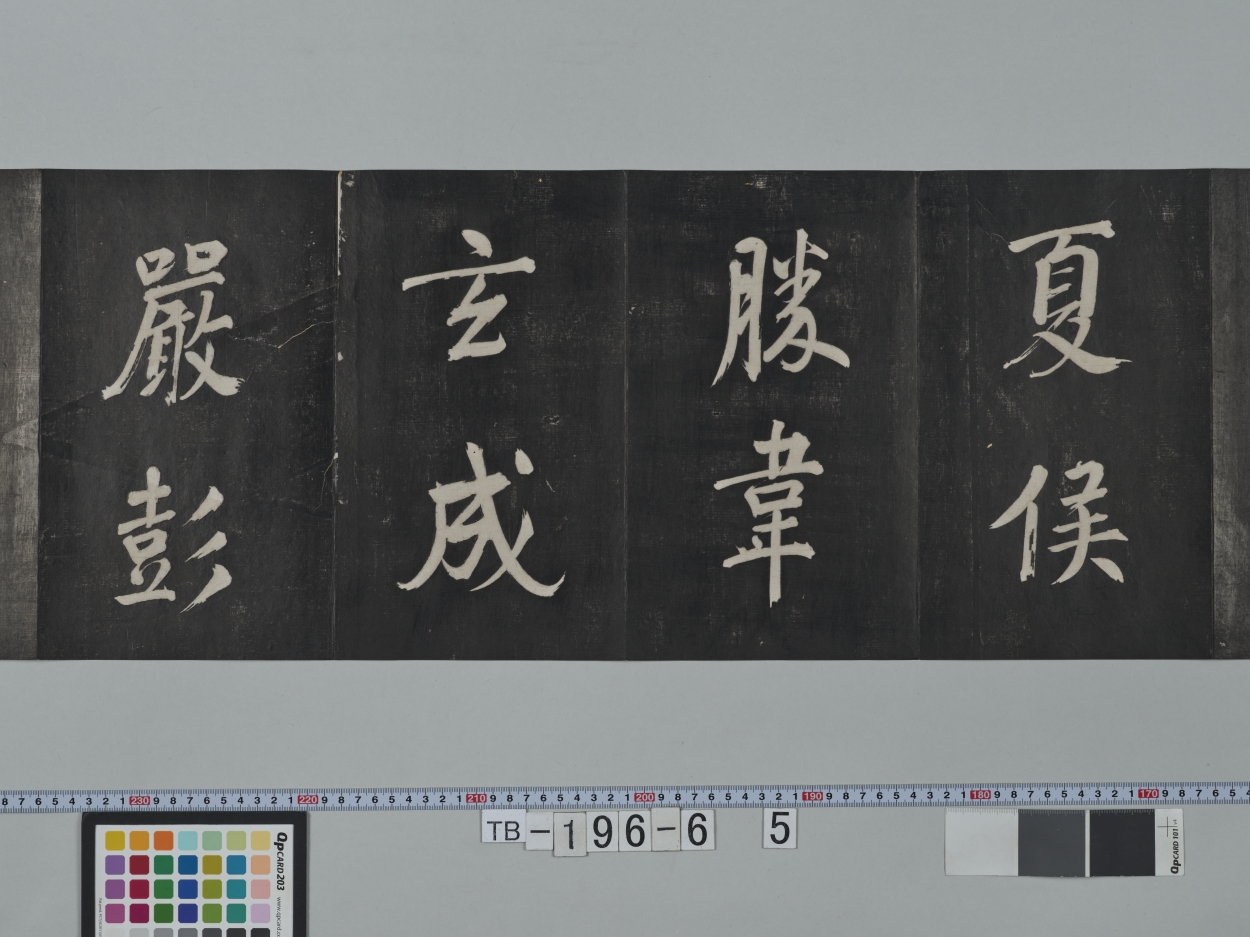 夏侯
勝韋
玄成
嚴彭
8 7 6 5 4 3 2 1 230 9 8 7 6 5 4 3 2 1 220 9 8 7 6 5 4 3 2 1 210 9 8 7 6 5 4 3 2 1 200 9 8 7 6 5 4 3 2 1 190 9 8 7 6 5 4 3 2 1 180 9 8 7 6 5 4 3 2 1 170 9 8 7 6 5
TB-196-6 5
QPCARD 203
QPCARD 101